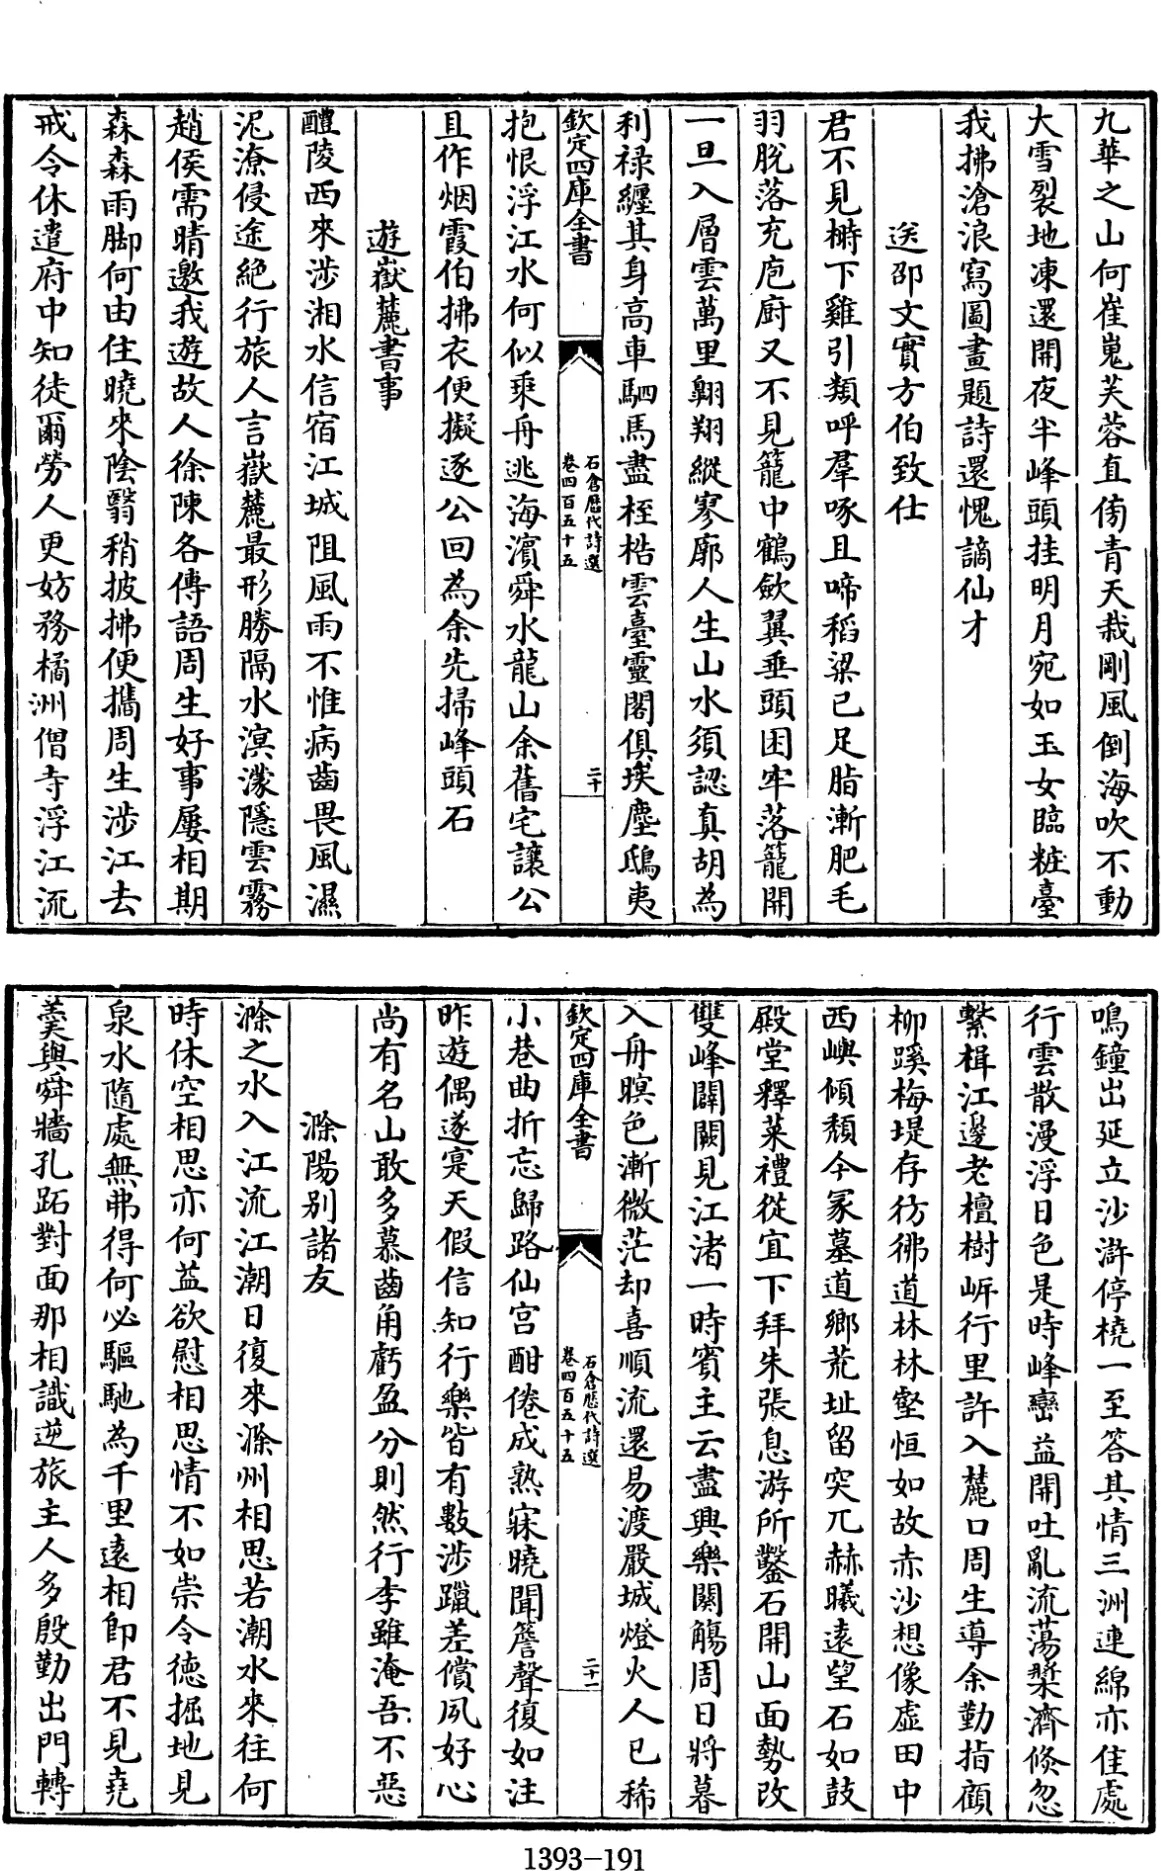 九華之山何崔嵬芙蓉直傍青天栽剛風倒海吹不動
大雪裂地凍還開夜半峰頭挂明月宛如玉女臨粧臺
我拂滄浪寫圖畫題詩還愧謫仙才
送邵文實方伯致仕
君不見榯下雞引類呼羣啄且啼稻粱已足脂漸肥毛
羽脫落充庖厨又不見籠中鶴歛翼垂頭困牢落籠開
一旦入層雲萬里翺翔縱寥廓人生山水須認真胡為
利祿纏其身高車駟馬盡桎梏雲臺靈閣俱埃塵鴟夷
欽定四庫全書
石倉歷代詩選
卷四百五十五
二十
抱恨浮江水何似乘舟逃海濵舜水龍山余舊宅讓公
且作烟霞伯拂衣便擬逐公回為余先掃峰頭石
遊嶽麓書事
醴陵西來涉湘水信宿江城阻風雨不惟病齒畏風濕
泥潦侵途絶行旅人言嶽麓最形勝隔水溟濛隱雲霧
趙侯需晴邀我遊故人徐陳各傳語周生好事屢相期
森森雨脚何由住曉來陰翳稍披拂便擕周生涉江去
戒令休遣府中知徒爾勞人更妨務橘洲僧寺浮江流
鳴鐘出延立沙滸停橈一至答其情三洲連綿亦佳處
行雲散漫浮日色是時峰巒益開吐亂流蕩槳濟倐忽
繫楫江邊老檀樹岍行里許入麓口周生導余勤指顧
柳蹊梅堤存彷彿道林林壑恒如故赤沙想像虛田中
西嶼傾頽今冢墓道鄉荒址留突兀赫曦遠望石如鼓
殿堂釋菜禮從宜下拜朱張息游所鑿石開山面勢改
雙峰闢闕見江渚一時賓主云盡興樂闋觴周日將暮
入舟暝色漸微茫却喜順流還易渡嚴城燈火人已稀
欽定四庫全書
石倉歷代詩選
卷四百五十五
二十一
小巷曲折忘歸路仙宫酣倦成熟寐曉聞簷聲復如注
昨遊偶遂寔天假信知行樂皆有數涉躐差償夙好心
尚有名山敢多慕齒角虧盈分則然行李雖淹吾不惡
滁陽别諸友
滁之水入江流江潮日復來滁州相思若潮水來往何
時休空相思亦何益欲慰相思情不如崇令德掘地見
泉水隨處無弗得何必驅馳為千里遠相卽君不見堯
羮與舜牆孔跖對面那相識逆旅主人多殷勤出門轉
1393—191